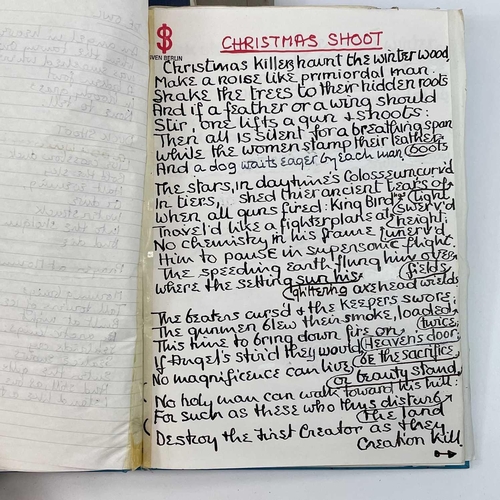 $
VEN BERLIN
CHRISTMAS SHOOT
Christmas Killers haunt the winter wood,
Make a noise like primiordal man.
Shake the trees to their hidden roots
And if a feather or a wing should
Stir, one lifts a gun & shoots:
Then all is silent for a breathing span
While the women stamp their leather
boots
And a dog waits eager by each man
The stars, in daytime's Colosseum curv'd
In tiers, shed thier ancient tears of
light
When all guns fired: King Bird swerv'd
Travel'd like a fighterplane at height;
No chemistry in his frame
Him to pause in supersonic flight.
The speeding earth flung him over
fields
Where the setting sun his
glittering axehead wields
The beaters cursd & the keepers swore;
The gunmen blew their smoke, loaded
twice,
This time to bring down fire on
Heavens door:
If Angel's stir'd they would be the sacrifice,
No magnificence can live
or beauty stand,
No holy man can walk toward this hill:
For such as these who thus disturb
the land
Destroy the First Creator as they
Creation Kill.